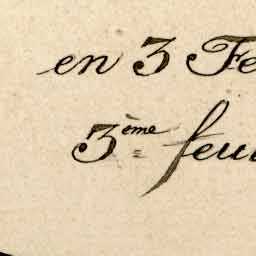 en 3 Fe
3ème feui